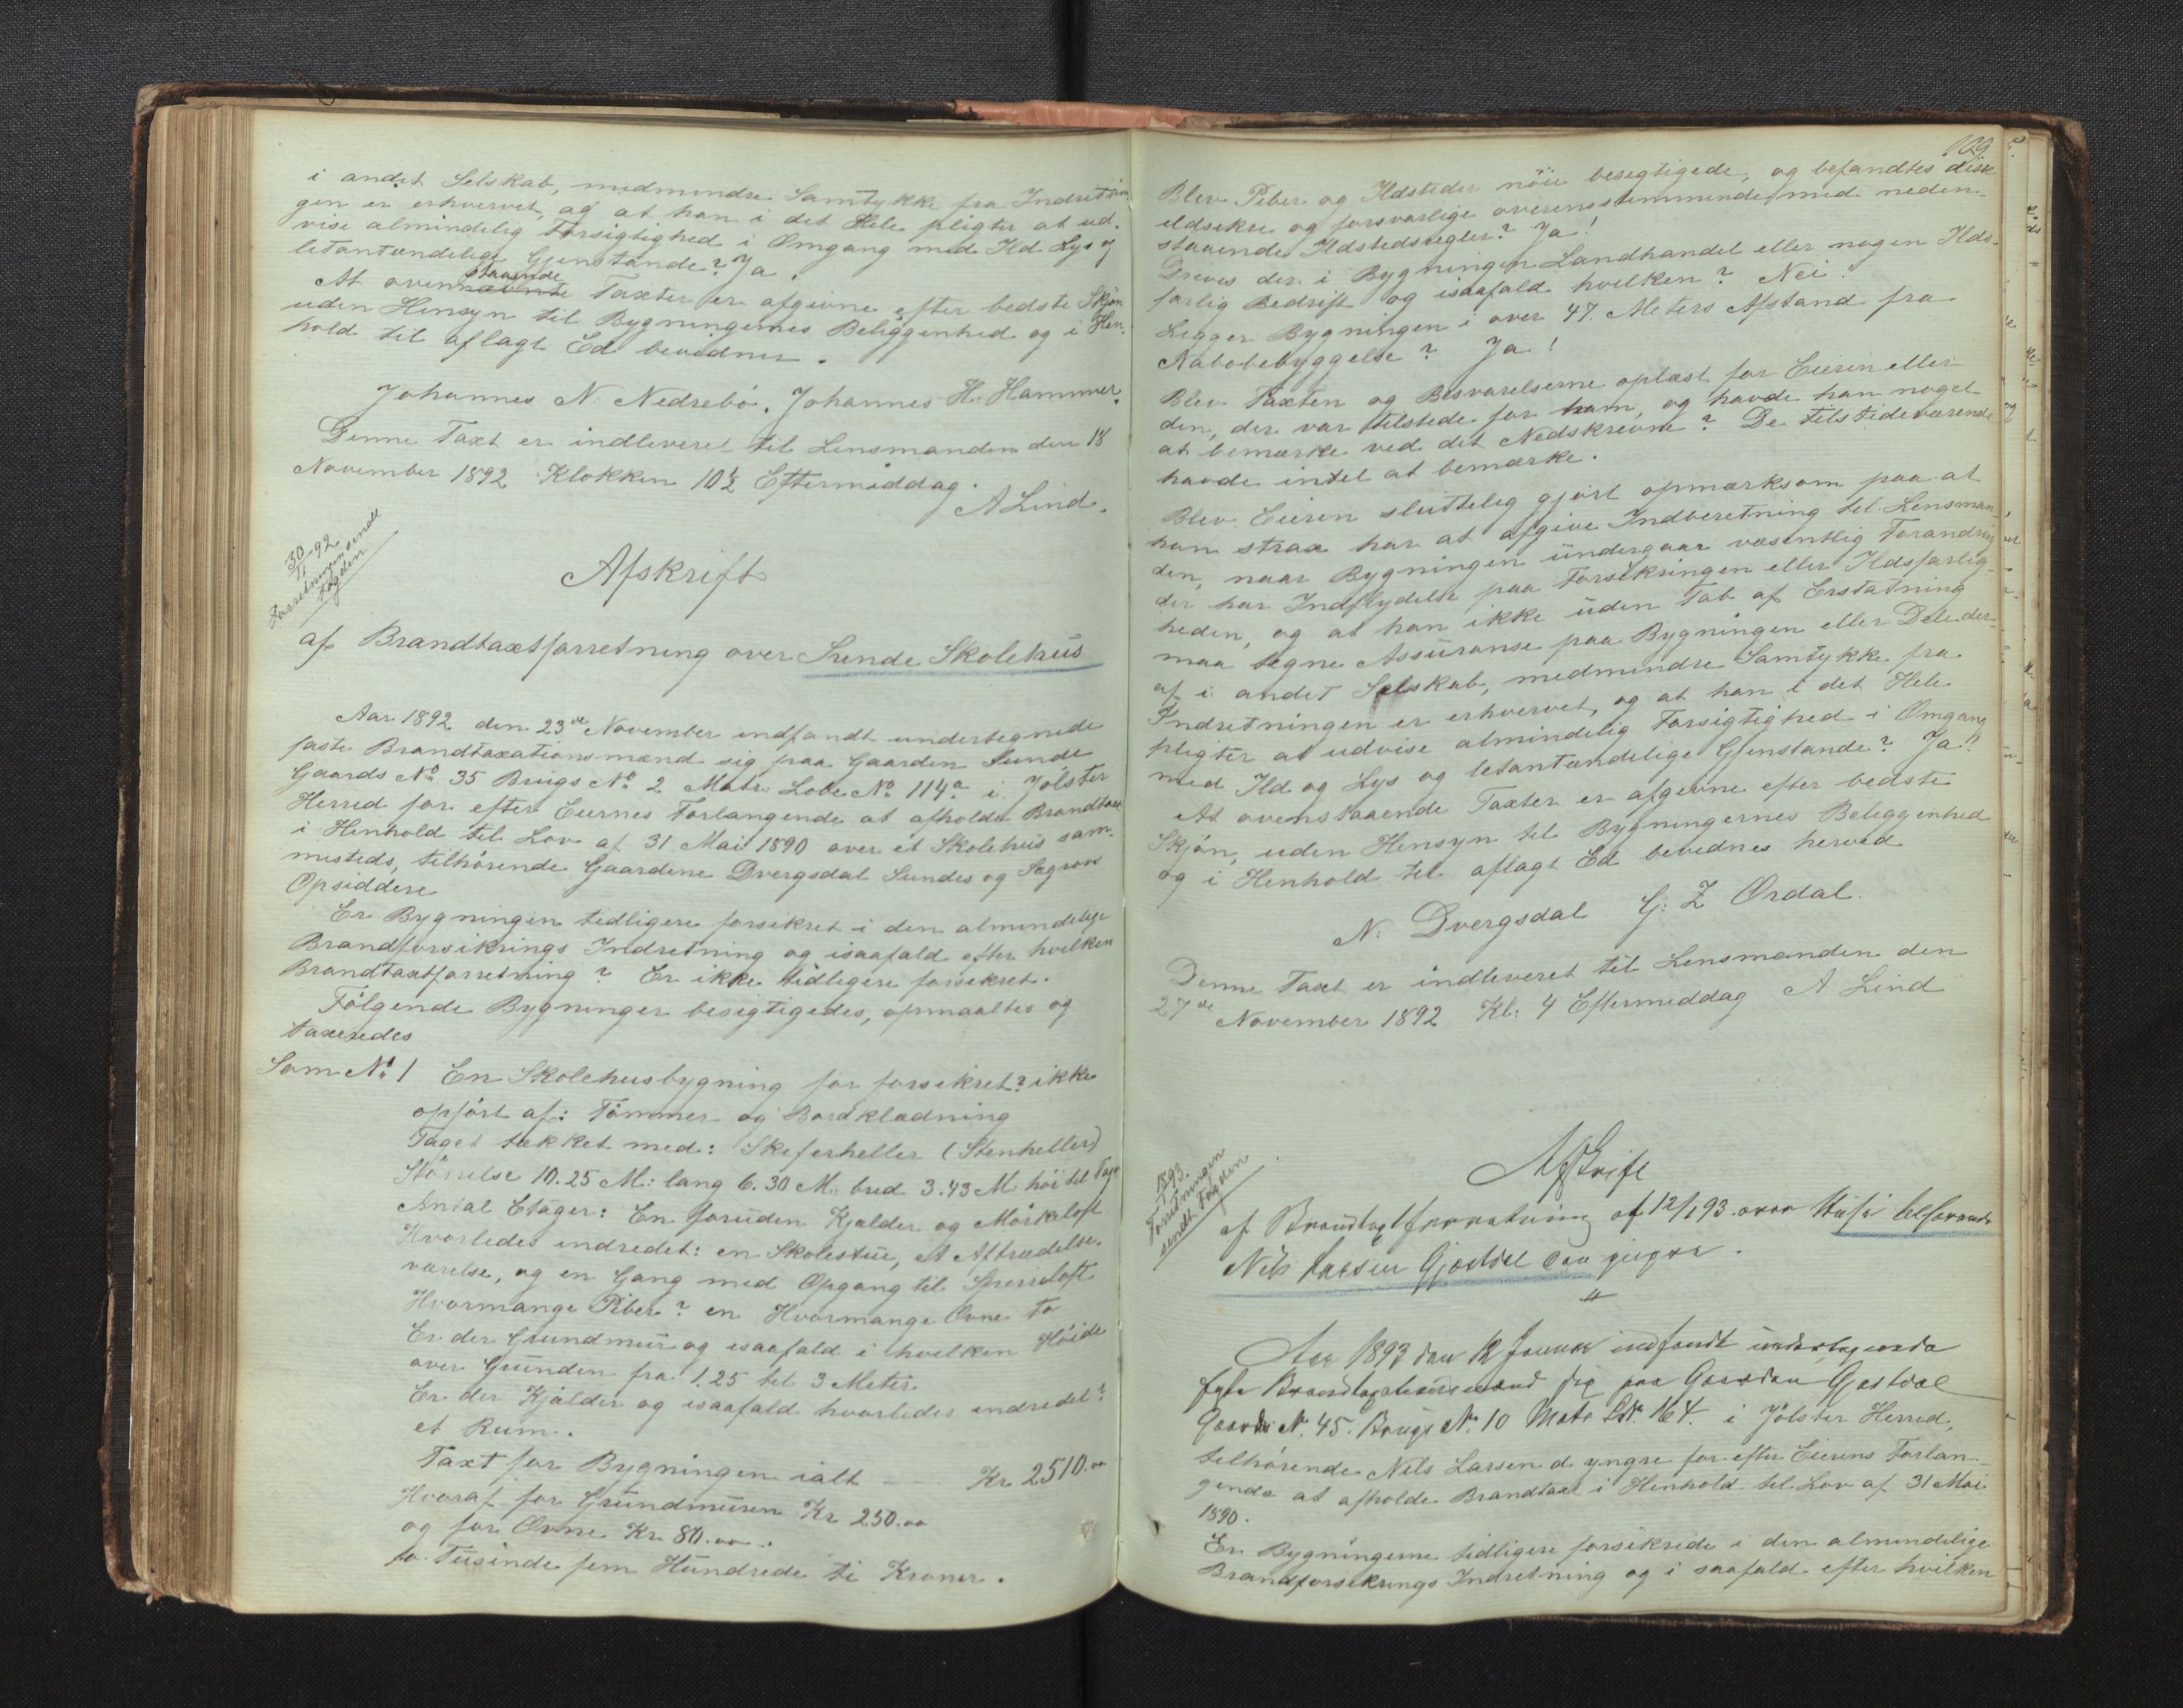 i andet Selskab, medmindre Samtykke fra Indretnin
gen er erhvervet, og at han i det Hele pligter at ud-
vise almindelig Forsigtighed i Omgang med Ild Lys og
letantændelige Gjenstande? Ja.
At ovennævnte staaende Taxter er afgivne efter bedste Skjøn
uden Hensyn til Bygningernes Beliggenhed og i Hen-
hold til aflagt Ed bevidnes.
Johannes N. Nedrebö. Johannes H. Hammer.
Denne Taxt er indleveret til Lensmanden den 18
November 1892 Klokken 10½ Eftermiddag.
A Lind.
30/11 92
Forretningen sendt
Fogden
Afskrift
af Brandtaxtforretning over Sunde Skolehus
Aar 1892 den 23de November indfandt undertegnede
faste Brandtaxationsmænd sig paa Gaarden Sunde
Gaards No 35 Brugs No 2 Matr. Løbe No 114a i Jölster
Herred for efter Eiernes Forlangende at afholde Brandtaxt
i Henhold til Lov af 31 Mai 1890 over et Skolehus sam-
mesteds, tilhörende Gaardene Dvergsdal Sundes og Sægrov
Opsiddere
Er Bygningen tidligere forsikret i den almindelige
Brandforsikrings Indretning og isaafald efter hvilken
Brandtaxtforretning? Er ikke tidligere forsikret.
Fölgende Bygninger besigtigedes, opmaaltes og
taxeredes
Som No 1 En Skolehusbygning för forsikret? ikke
opfört af: Tömmer og Bordklædning
Taget tækket med: Skiferheller (Stenheller)
Störrelse 10.25 M: lang 6.30 M. bred 3.43 M. höi til Tage
Antal Etager: En foruden Kjælder og Mörkeloft
Hvorledes indredet: en Skolestue, et Aftrædelse-
værelse, og en Gang med Opgang til Spereloft
Hvormange Piber? en Hvormange Ovne to
Er der Grundmur og isaafald i hvilken Höide
over Grunden fra 1.25 til 3 Meter
Er der Kjælder og isaafald hvorledes indredet?
et Rum.
Taxt for Bygningen ialt - Kr 2510.00
Hvoraf for Grundmuren Kr 250.00
og for Ovne Kr 80.00.
to Tusinde fem Hundrede ti Kroner.
129
Blev Piber og Ildsteder nöie besigtigede, og befandtes disse
ildsikre og forsvarlige overensstemmende med neden-
staaende Ildstedsregler? Ja!
Dreves der i Bygningen Landhandel eller nogen Ilds-
farlig Bedrift og isaafald hvilken? Nei.
Ligger Bygningen i over 47 Meters Afstand fra
Nabobebyggelse? Ja!
Blev Taxten og Besvarelserne oplæst for Eieren eller
den, der var tilstede for ham, og havde han noget
at bemærke ved det Nedskrevne? De tilstedeværende
havde intet at bemærke.
Blev Eieren sluttelig gjort opmærksom paa at
han strax har at afgive Indberetning til Lensman
den, naar Bygningen undergaar væsentlig Forandring
der har Indflydelse paa Forsikringen eller Ildsfarlig-
heden, og at han ikke uden Tab af Erstatning
maa tegne Assuranse paa Bygningen eller Dele der-
af i andet Selskab, medmindre Samtykke fra
Indretningen er erhvervet, og at han i det Hele
pligter at udvise almindelig Forsigtighed i Omgang
med Ild og Lys og letantændelige Gjenstande? Ja!
At ovenstaaende Taxter er afgivne efter bedste
Skjön, uden Hensyn til Bygningernes Beliggenhed
og i Henhold til aflagt Ed bevidnes herved
N. Dvergsdal G: Z Ordal.
Denne Taxt er indleveret til Lensmanden den
27de November 1892 Kl: 4 Eftermiddag A Lind
1893.
Forretningen
sendt Fogden
Afskrift
af Brandtaxtforretning af 12/1 93 over Huse tilhørende
Nils Larsen Gjesdal den yngre.
Aar 1893 den 12 Januar indfandt undertegnede
faste Brandtaxtationsmænd sig paa Gaarden Gjestdal
Gaards No. 45. Brugs No. 10 Matr LNr. 164. i Jölster Herred,
tilhörende Nils Larsen d yngre for efter Eierens Forlan-
gende at afholde Brandtaxt i Henhold til Lov af 31 Mai
1890.
Er Bygningerne tidligere forsikrede i den almindelige
Brandforsikrings Indretning og i saafald efter hvilken